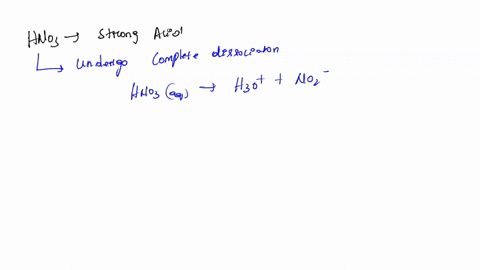 HNO3 → Strong Acid
↳ Undergo Complete dissociation
HNO3 (aq) → H3O+ + NO2-